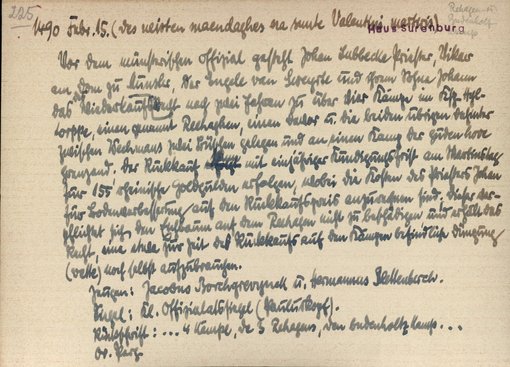 225
Rehagen u.
Budenholt
Kamp
1490 Febr. 15. (des neisten maendaghes na sunte Valentini martiris)
Haus Surenburg
Vor dem münsterischen Offizial gesteht Johan Lubbecke Priester, Vikar
am Dom zu Munster, der Engele van Snetgerte und ihrem Sohne Johann
das Wiederkaufsrecht nach zwei Jahren zu über vier Kämpe im Ksp.
torppe, einen genannt Reehaghen, einen davor u. die beiden übrigen dahinter
zwischen Wechmans zwei gelegen und an einen Kamp der guden hove
grenzend. Der Rückkauf muß mit einjähriger Kündigungsfrist am Martinstag
für 155 rheinische Goldgulden erfolgen, wobei die Kosten des Priesters Johan
für Bodenverbesserung auf den Rückkaufspreis anzurechnen sind. Dieser ver-
pflichtet sich, den Eichbaum auf dem Reehagen nicht zu beschädigen und erhält das
Recht, eine etwa zur Zeit des Rückkaufs auf den Kämpen befindliche Düngung
(vette) noch selbst aufzubrauchen.
Zeugen: Jacobus Borchgrevynck u. Hermannus Blettenberch.
Siegel: kl. Offizialatssiegel (Pauluskopf).
Rückschrift: ... 4 Kempe, de 3 Rehagens, den budenholtz kamp ...
Or. Perg.